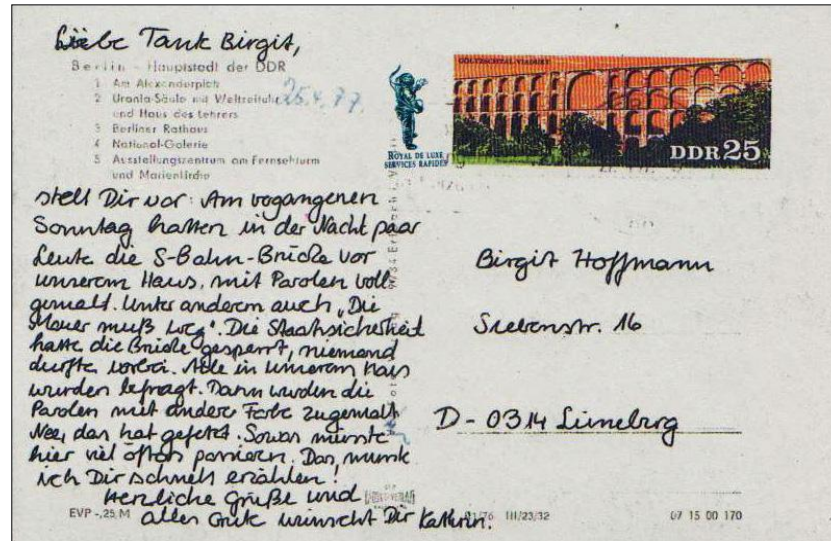 Liebe Tank Birgit,
Berlin - Hauptstadt der DDR
1 Am Alexanderplatz
2 Urania-Säule mit Weltzeituhr
und Haus des Lehrers
3 Berliner Rathaus
4 National-Galerie
5 Ausstellungszentrum am Fernsehturm
und Marienkirche
25.4.77.
ROYAL DE LUXE
SERVICES RAPIDES
GÖLTZSCHTAL-VIADUKT
DDR 25
stell Dir vor: Am vogangenen
Sonntag hatten in der Nacht paar
Leute die S-Bahn-Brücke vor
unserem Haus, mit Parolen voll-
gemalt. Unter anderem auch „Die
Mauer muß weg". Die Staatssicherheit
hatte die Brücke gesperrt, niemand
durfte vorbei. Alle in unserem Haus
wurden befragt. Dann wurden die
Parolen mit andere Farbe zugemalt.
Nee, das hat gefetzt. Sowas müsste
hier viel öfters passieren. Das, musste
ich Dir schnell erzählen!
Herzliche Grüße und
alles Gute wünscht Dir Kathrin.
Birgit Hoffmann
Suebenstr. 16
D - 0314 Lüneburg
EVP -,25 M
III/23/32
07 15 00 170